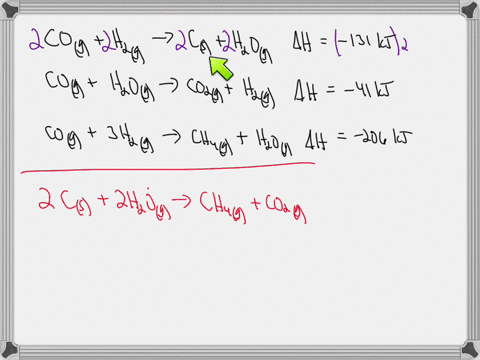 2CO(g) + 2H2(g) → 2C(s) + 2H2O(g) ΔH = (-131 kJ)2
CO(g) + H2O(g) → CO2(g) + H2(g) ΔH = -41 kJ
CO(g) + 3H2(g) → CH4(g) + H2O(g) ΔH = -206 kJ
2C(s) + 2H2O(g) → CH4(g) + CO2(g)